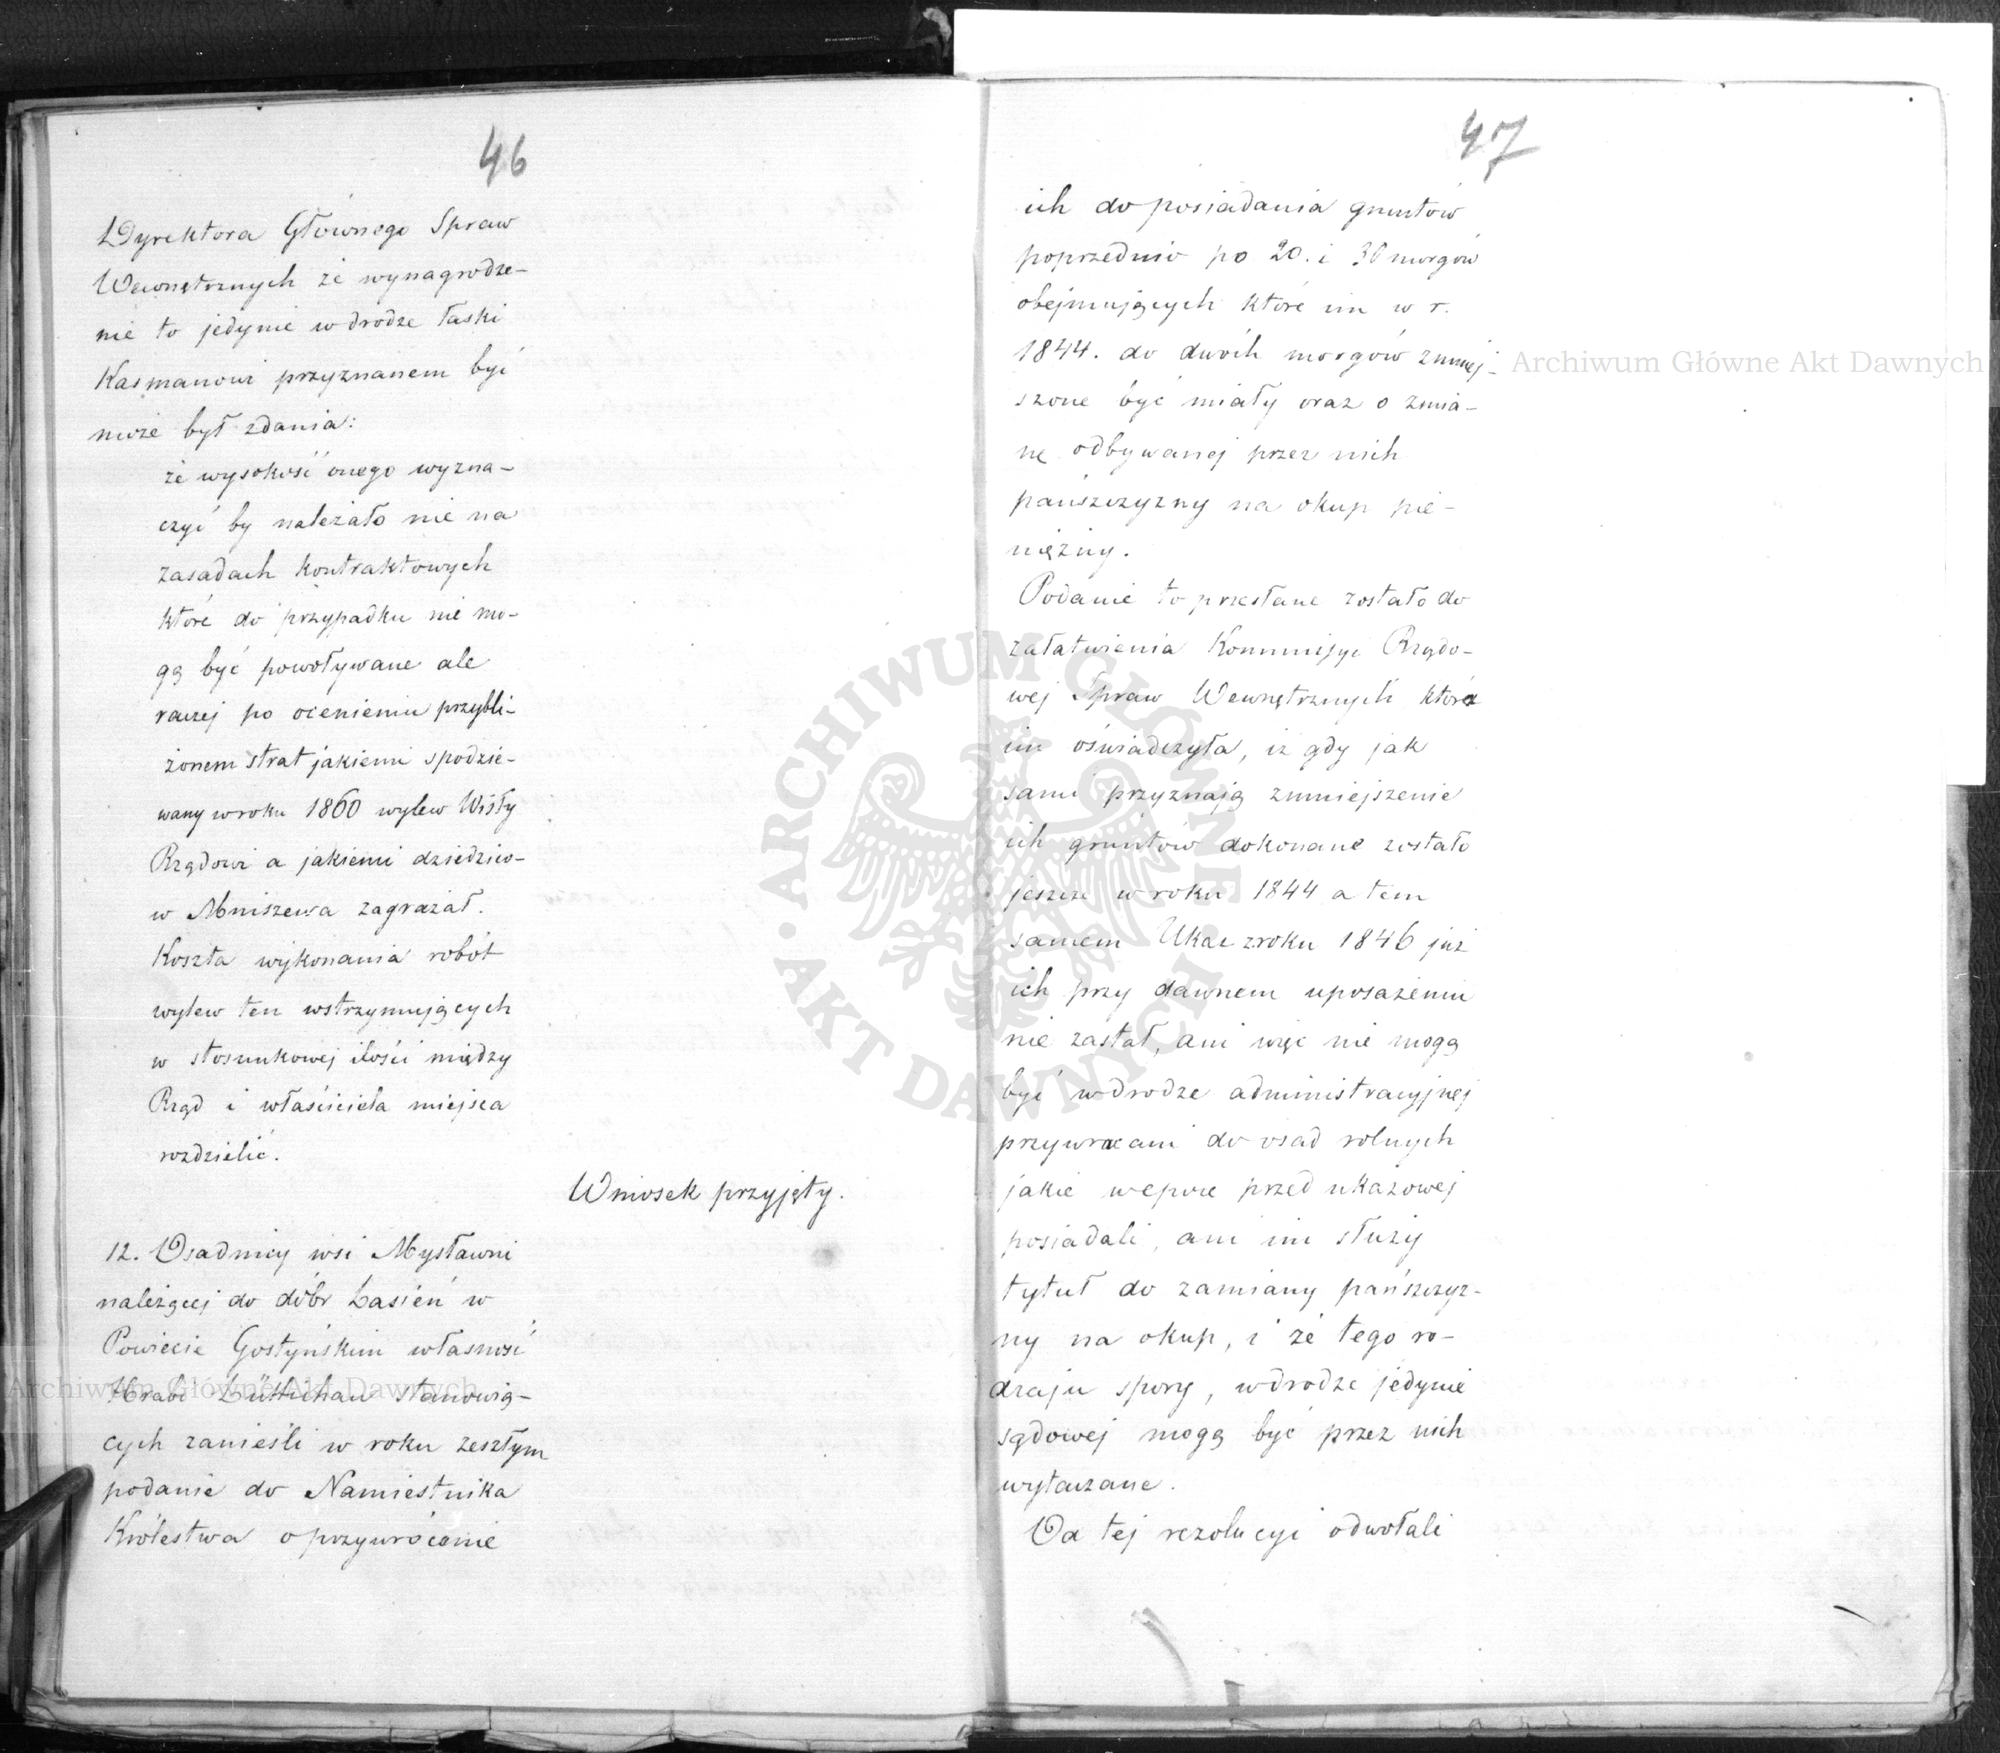 46
Dyrektora Głównego Spraw
Wewnętrznych że wynagrodze-
nie to jedynie w drodze łaski
Kasmanowi przyznanem być
może był zdania:
że wysokość onego wyzna-
czyć by należało nie na
zasadach kontraktowych
które do przypadku nie mo-
gą być powoływane ale
raczej po ocenieniu przybli-
żonem strat jakiemi spodzie-
wany w roku 1860 wylew Wisły
Rządowi a jakiemi dziedzico-
w Mniszewa zagrażał.
Koszta wykonania robót
wylew ten wstrzymujących
w stosunkowej ilości między
Rząd i właściciela miejsca
rozdzielić.
Wniosek przyjęty.
12. Osadnicy wsi Mysławni
należącej do dóbr Łasień w
Powiecie Gostyńskim własność
Hrabi Lüttichau stanowią-
cych zanieśli w roku zeszłym
podanie do Namiestnika
Królestwa o przywrócenie
47
ich do posiadania gruntów
poprzednio po 20. i 30 morgów
obejmujących które im w r.
1844. do dwóch morgów zmniej-
szone być miały oraz o zmia-
nę odbywanej przez nich
pańszczyzny na okup pie-
niężny.
Podanie to przesłane zostało do
załatwienia Kommissyi Rządo-
wej Spraw Wewnętrznych która
im oświadczyła, iż gdy jak
sami przyznają zmniejszenie
ich gruntów dokonane zostało
jeszcze w roku 1844 a tem
samem Ukaz z roku 1846 już
ich przy dawnem uposażeniu
nie zastał, ani więc nie mogą
być w drodze administracyjnej
przywracani do osad rolnych
jakie w epoce przed ukazowej
posiadali, ani im służy
tytuł do zamiany pańszczyz-
ny na okup, i że tego ro-
dzaju spory, w drodze jedynie
sądowej mogą być przez nich
wytaczane.
Od tej rezolucyi odwołali
Archiwum Główne Akt Dawnych
Archiwum Główne Akt Dawnych
ARCHIWUM GŁÓWNE · AKT DAWNYCH ·